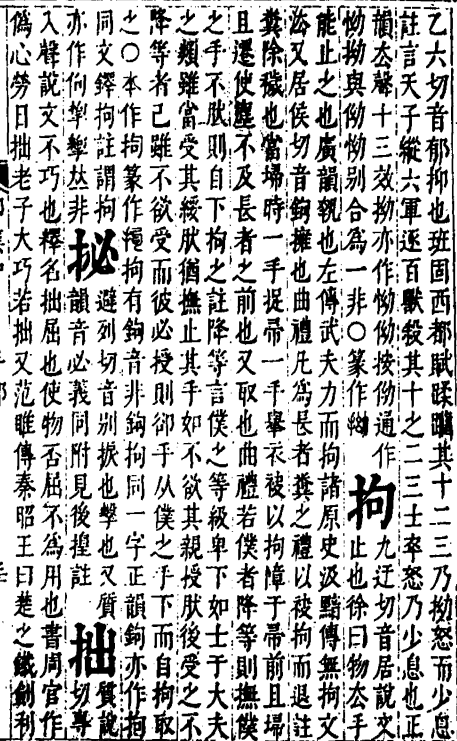 乙六切音郁抑也班固西都賦蹂躪其十二三乃拗怒而少息
註言天子縱六軍逐百獸殺其十之二三士卒怒乃少息也正
韻去聲十三效拗亦作怮怮按怮通作
怮拗與怮怮别合爲一非○篆作 拘 九迂切音居說文
止也徐曰物去手
能止之也廣韻執也左傳武夫力而拘諸原史汲黯傳無拘文
法又居侯切音鉤擁也曲禮凡爲長者糞之禮以袂拘而退註
糞除穢也當埽時一手捉帚一手舉衣袂以拘障于帚前且埽
且遷使塵不及長者之前也又取也曲禮若僕者降等則撫僕
之手不肰則自下拘之註降等言僕之等級卑下如士于大夫
之類雖當受其綏肰猶撫止其手如不欲其親授肰後受之不
降等者己雖不欲受而彼必授則卻手从僕之手下而自拘取
之○本作拘篆作 拘有鉤音非鉤拘同一字正韻鉤亦作拘
同文鐸拘註謂拘
亦作佝㧁 𠀤非 拯 避列切音别捩也擊也又質
韻音必義同附見後 註 拙 質說
切專
入聲說文不巧也釋名拙屈也使物否屈不爲用也書周官作
僞心勞日拙老子大巧若拙又范雎傳秦昭王曰楚之鐵劍利